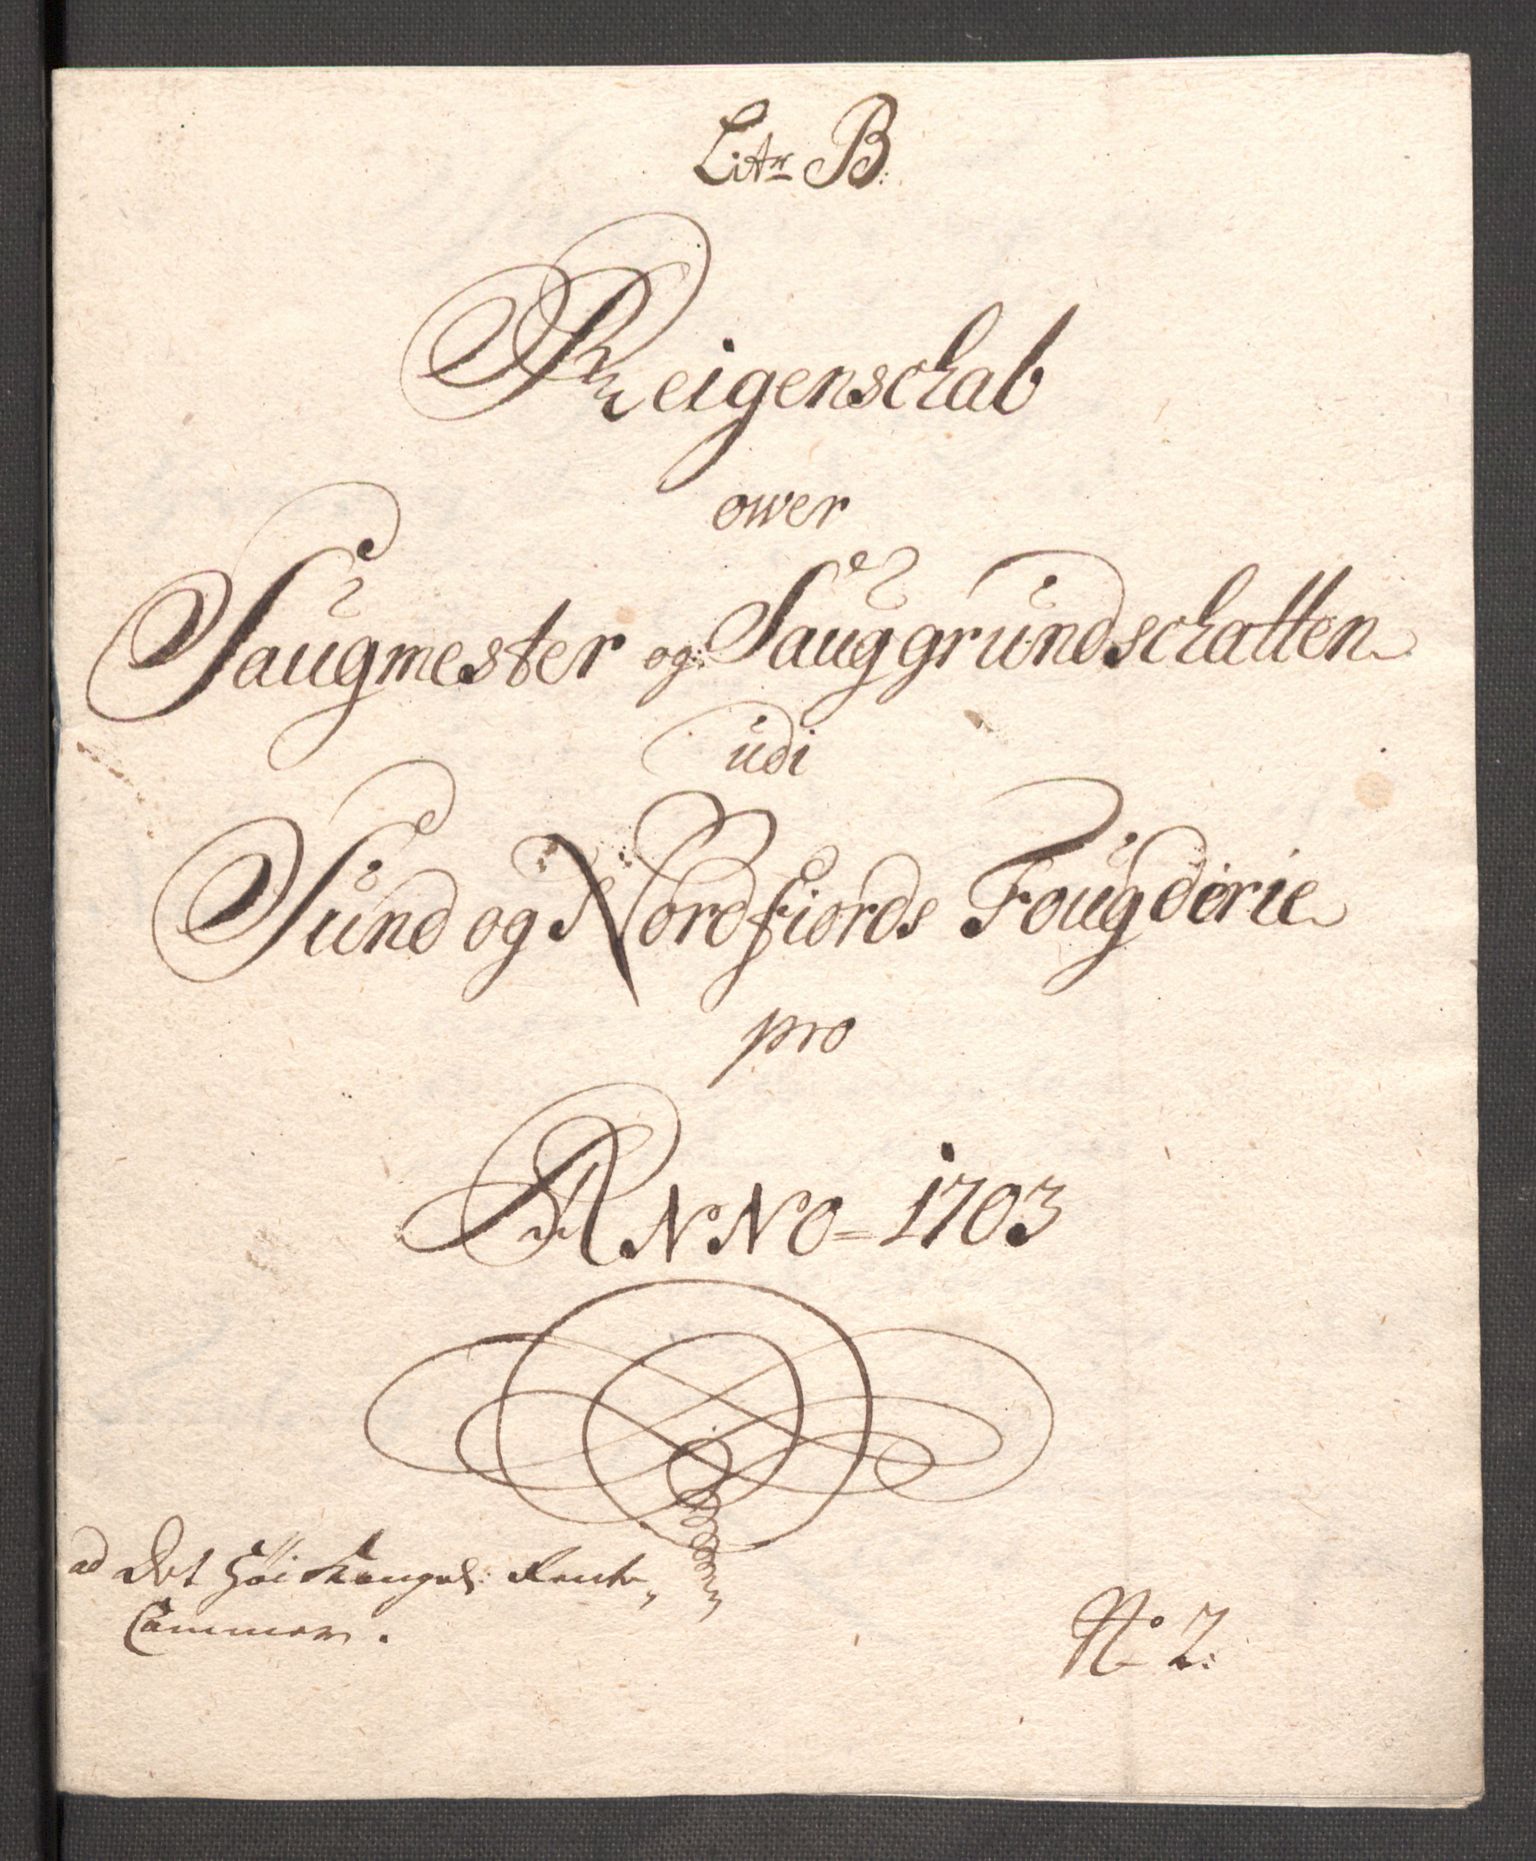 Litr B:
Reigenschab
ower
Saugmester og Sauggrundschatten
udi
Sund og Nordfiords Fougderie
pro
ANNO 1703
ad Det Höi Kongel: Rente
Cammer.
No 2: